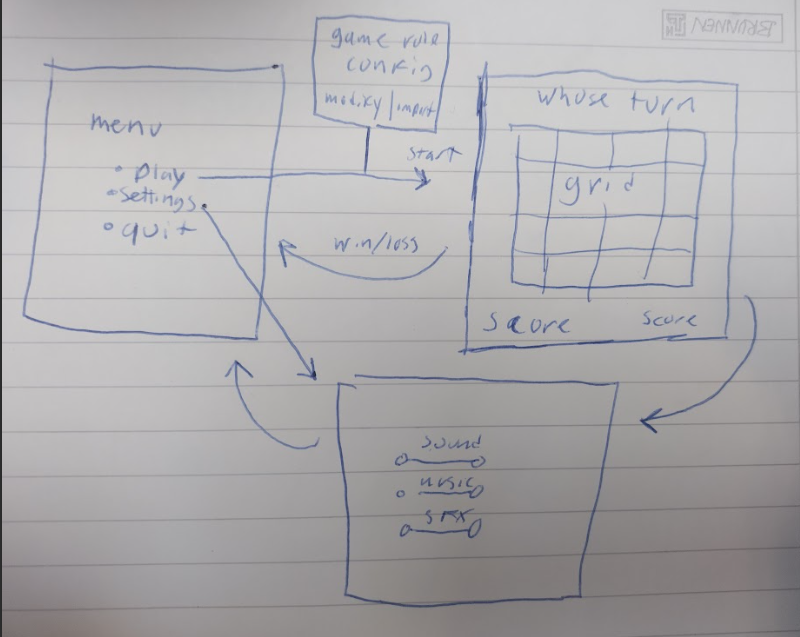 BRUNNEN
game rule
config
modify / import
menu
• Play
• Settings
• quit
Start
win/loss
whose turn
grid
Score
Score
Sound
music
SFX